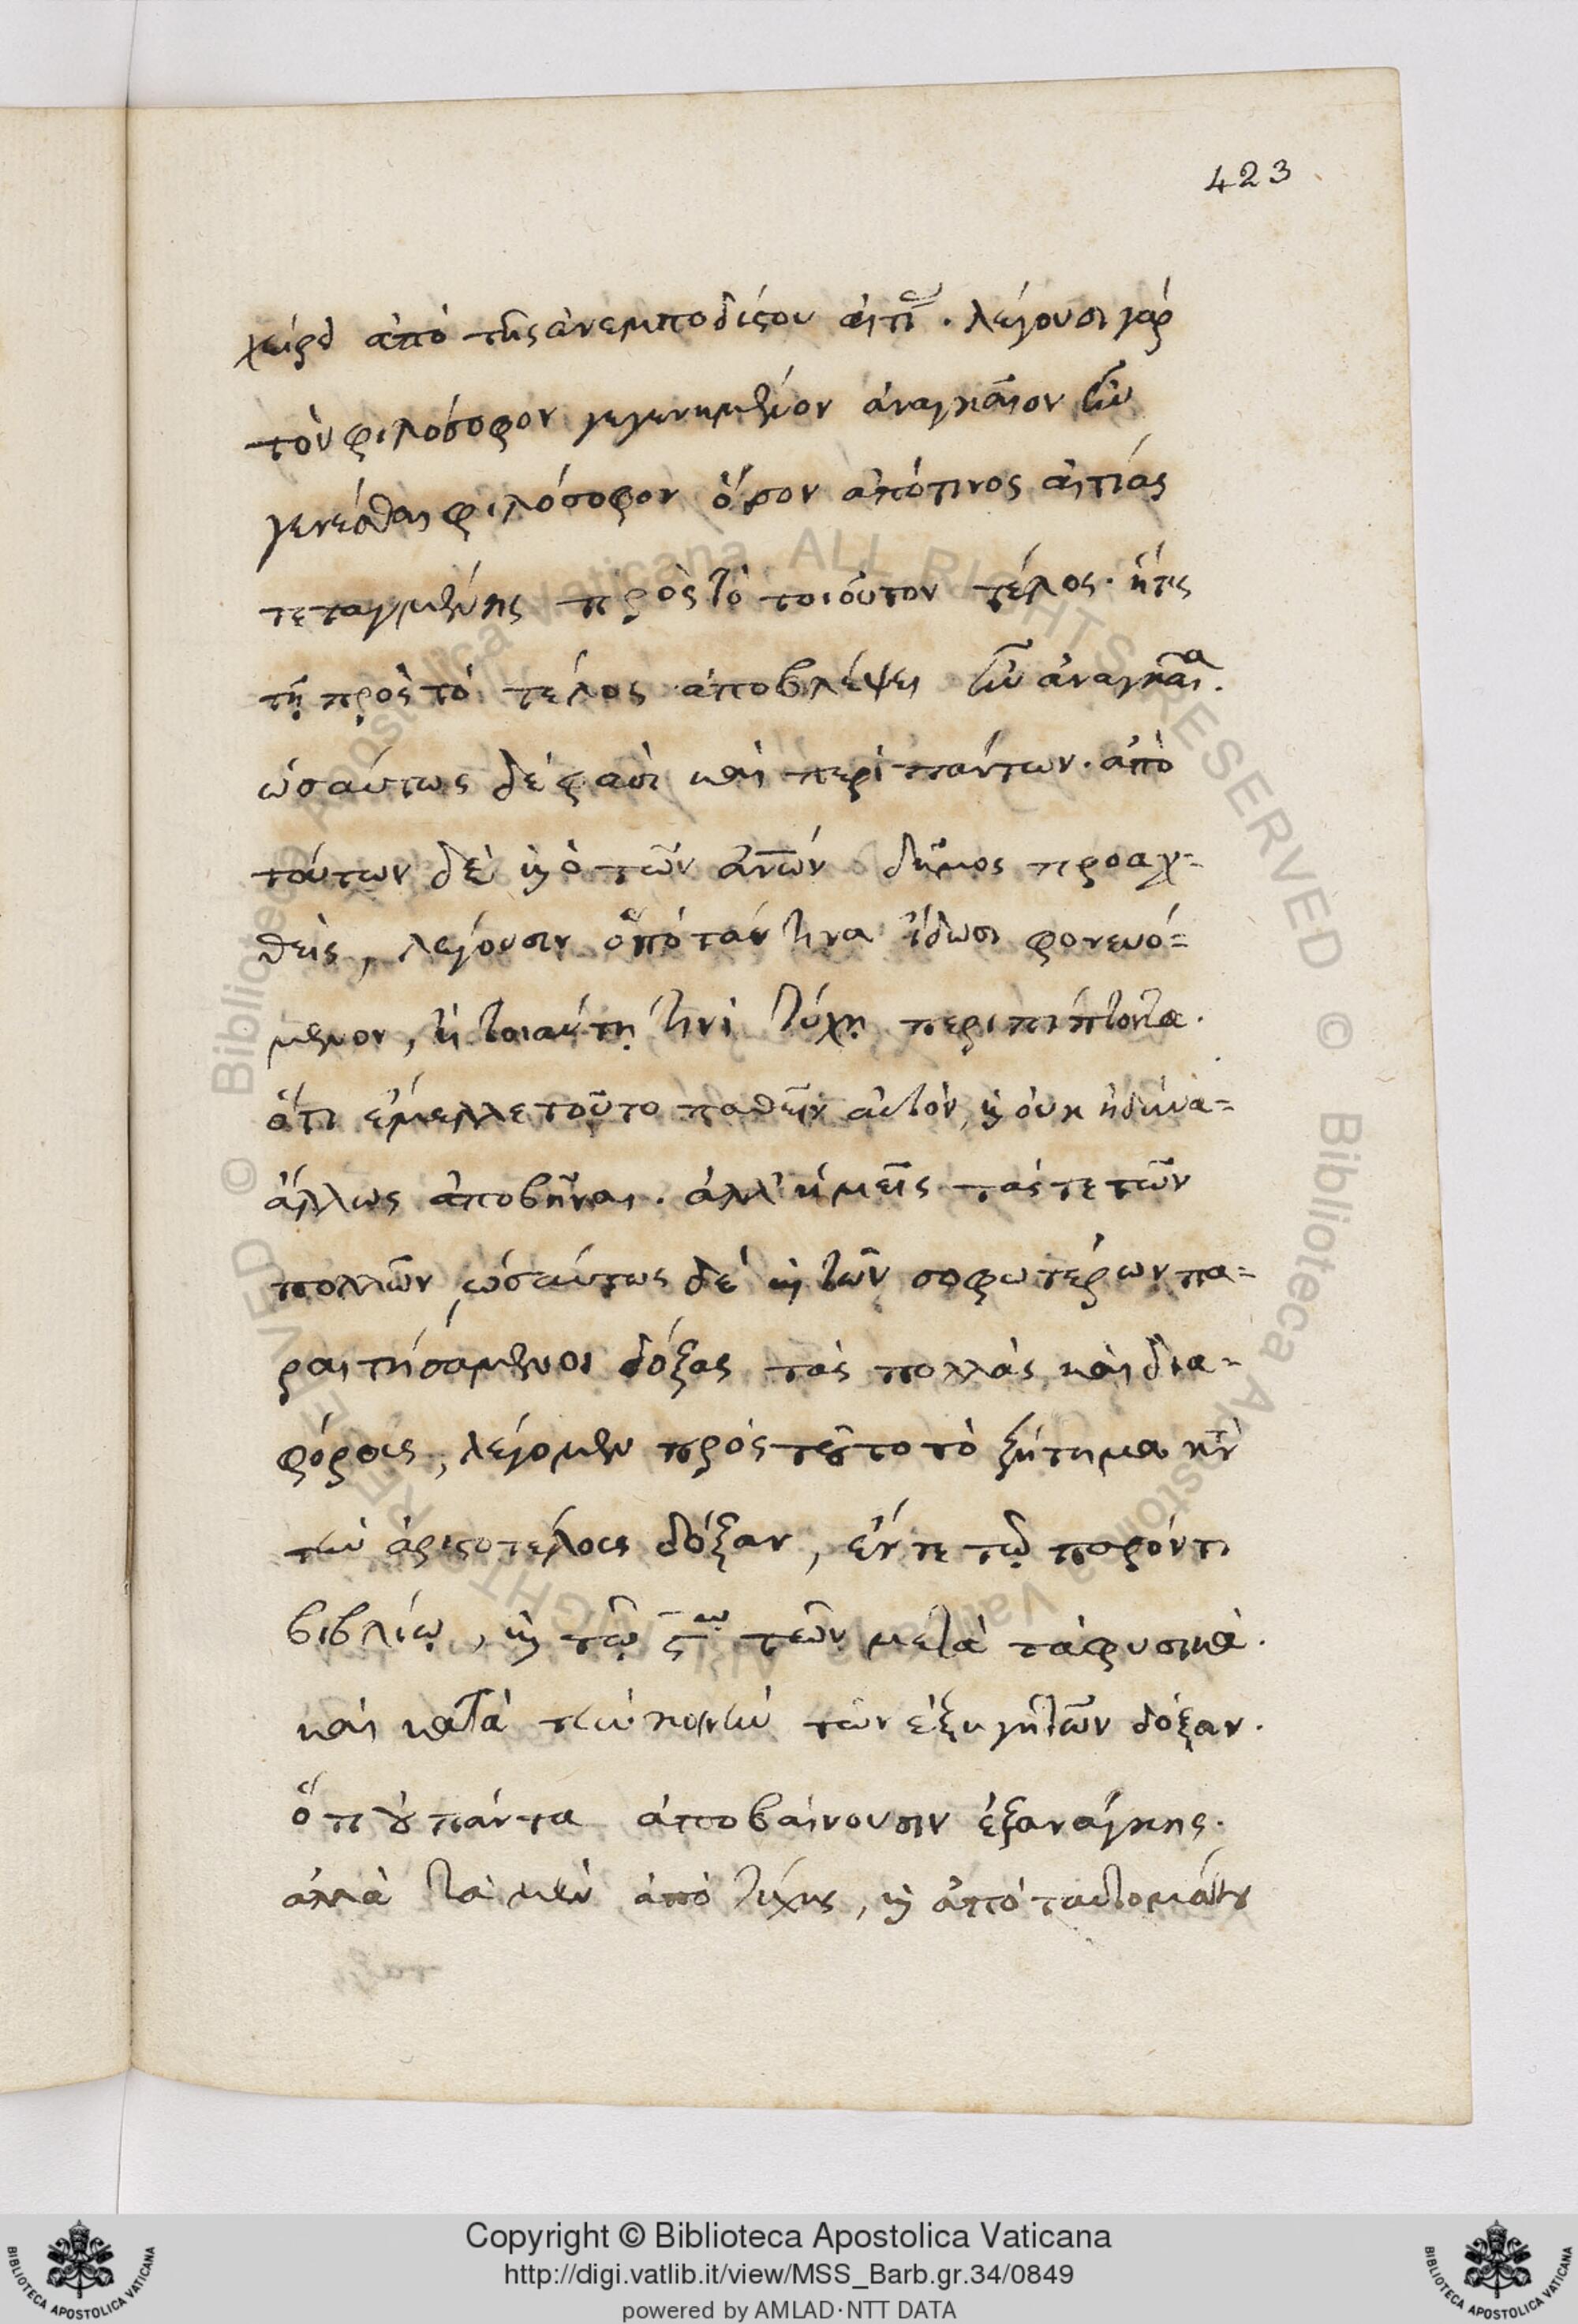 423
ἀπὸ τῆς ἀνεμποδίστου αἰτί. λέγουσι γὰρ
τὸν φιλόσοφον γεγενημένον ἀναγκαῖον ἦν
γενέσθαι φιλόσοφον ἀπό τινος αἰτίας
τεταγμένης πρὸς τὸ τοιοῦτον τέλος· ἥτις
τῇ πρὸς τὸ τέλος ἀποβλέψει ἦν ἀναγκαία.
ὡσαύτως δέ φασι καὶ περὶ πάντων. ἀπὸ
τούτων δὲ κ ὁ τῶν ἀνῶν δῆμος προαχ=
θεὶς, λέγουσιν ὁπόταν τινα ἴδωσι φονευό=
μενον, ἢ τοιαύτῃ τινὶ τύχῃ περιπίπτοντα.
ὅτι ἔμελλε τοῦτο παθεῖν αὐτὸν, κ οὐκ ἠδύνα=
ἄλλως ἀποβῆναι. ἀλλ' ἡμεῖς τάς τε τῶν
πολλῶν, ὡσαύτως δὲ κ τῶν σοφωτέρων πα=
ραιτησάμενοι δόξας τὰς πολλὰς καὶ δια=
φόρους, λέγομεν πρὸς τοῦτο τὸ ζήτημα κτ
τὴν ἀριστοτέλους δόξαν, ἔν τε τῷ παρόντι
βιβλίῳ, κ τῷ ϛῳ τῶν μετὰ τὰ φυσικὰ.
καὶ κατὰ τὴν κοινὴν τῶν ἐξηγητῶν δόξαν.
ὅτι οὐ πάντα ἀποβαίνουσιν ἐξανάγκης.
ἀλλὰ τὰ μὲν ἀπὸ τύχης, κ ἀπὸ ταυτομάτου
© Biblioteca Apostolica Vaticana ALL RIGHTS RESERVED © Biblioteca Apostolica Vaticana ALL RIGHTS RESERVED
BIBLIOTECA APOSTOLICA VATICANA
Copyright © Biblioteca Apostolica Vaticana
http://digi.vatlib.it/view/MSS_Barb.gr.34/0849
powered by AMLAD·NTT DATA
BIBLIOTECA APOSTOLICA VATICANA